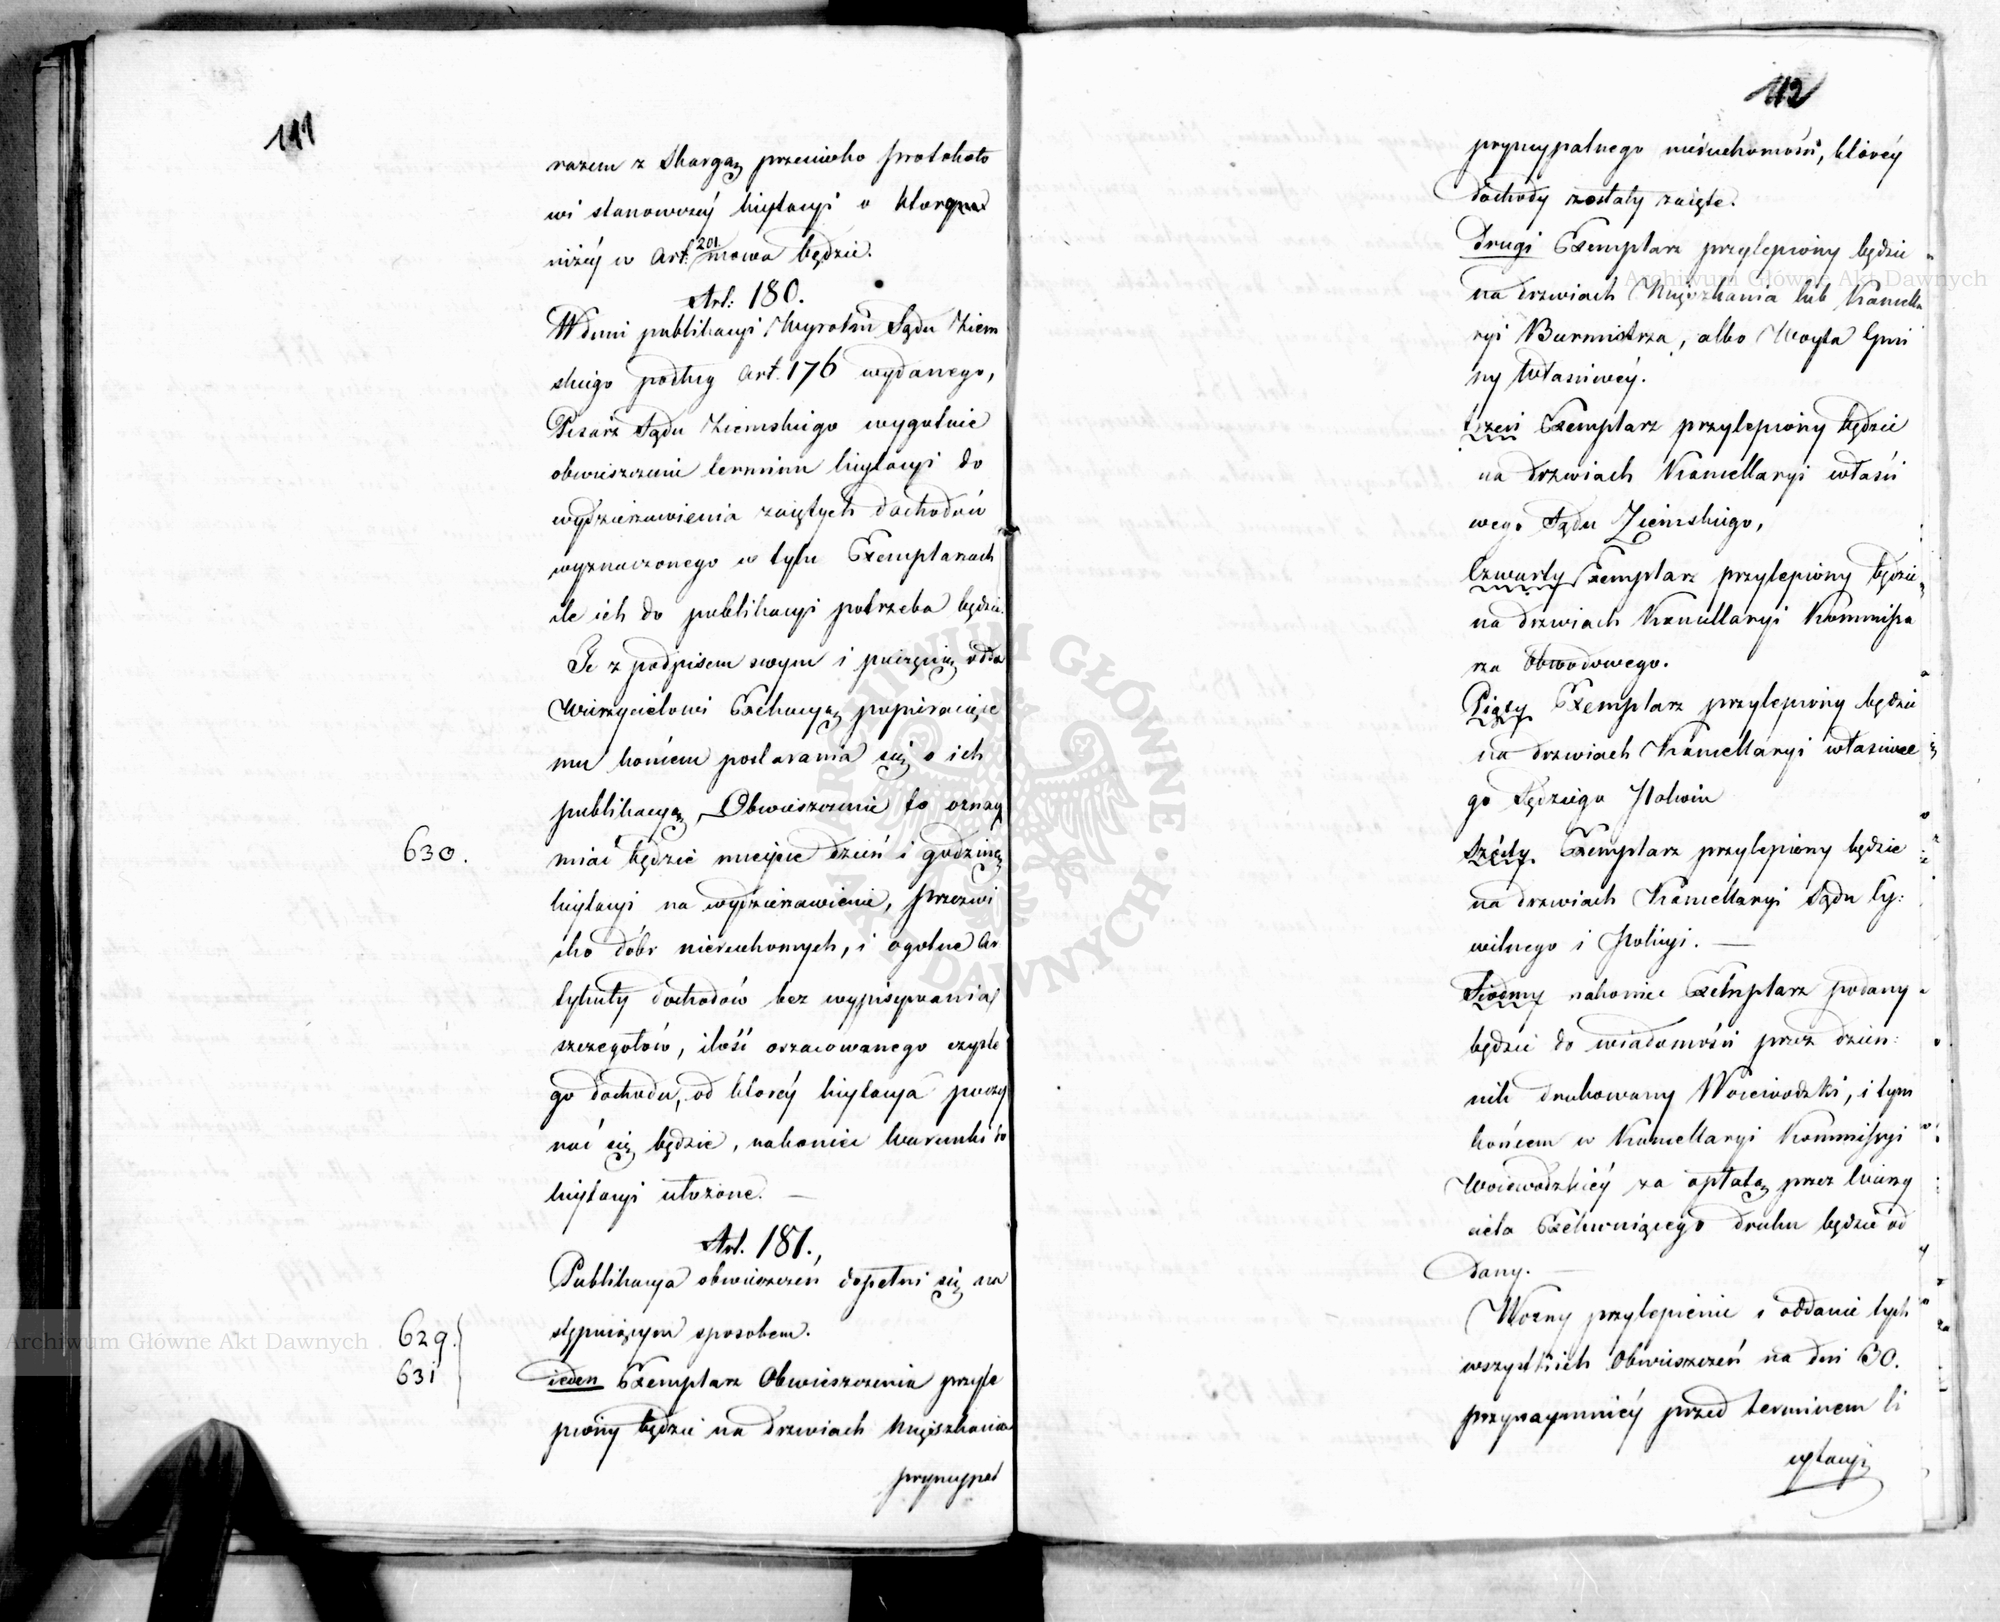 141
razem z Skargą przeciwko protokoło
wi stanowczéj licytacyi o którym
niżéj w Art. 201. mowa będzie.
Art: 180.
W dniu publikacyi Wyroku Sądu Ziem
skiego podług Art. 176 wydanego,
Pisarz Sądu Ziemskiego wygotuie
obwieszczenie terminu licytacyi do
wydzierżawienia zaiętych dochodów
wyznaczonego w tylu Exemplarzach
ile ich do publikacyi potrzeba będzie.
Te z podpisem swym i pieczęcią odda
Wierzycielowi Exekucyą popieraiące
mu końcem postarania się o ich
publikacyą, Obwieszczenie to oznay
630.
miać będzie mieysce dzień i godzinę
licytacyi na wydzierżawienie, przezwi
sko dóbr nieruchomych, i ogolne ar
tykuły dochodów bez wypisywania
szczegołów, ilość oszacowanego czyste
go dochodu, od którey licytacya poczy
nać się będzie, nakoniec warunki do
licytacyi ułożone. —
Art. 181.
Publikacya obwieszczeń dopełni się na
629.
stępuiącym sposobem.
631
ieden Exemplarz Obwieszczenia przyle
piony będzie na drzwiach Mięszkania
pryncypal
142
pryncypalnego nieruchomości, któréy
dochody zostały zaięte.
Drugi Exemplarz przylepiony będzie
na drzwiach Mięszkania lub Kancella
ryi Burmistrza, albo Woyta Gmi
ny Właściwéy.
trzeci Exemplarz przylepiony będzie
na drzwiach Kancellaryi właści
wego Sądu Ziemskiego,
Czwarty Exemplarz przylepiony będzie
na drzwiach Kancellaryi Kommissa
rza Obwodowego.
Piąty Exemplarz przylepiony będzie
na drzwiach Kancellaryi właściwe
go Sędziego Pokoiu
Szósty Exemplarz przylepiony będzie
na drzwiach Kancellaryi Sądu Cy:
wilnego i Policyi. —
Siodmy nakoniec Exemplarz podany
będzie do wiadomości przez dzien:
nik drukowany Woiewodzki, i tym
końcem w Kancellaryi Kommissyi
Woiewodzkiéy za opłatą przez wierzy
ciela Exekwuiącego druku będzie od
dany. —
Wozny przylepienie i oddanie tych
wszystkich Obwieszczeń na dni 30.
przynaymniéy przed terminem li
cytacyi
Archiwum Główne Akt Dawnych
Archiwum Główne Akt Dawnych
ARCHIWUM GŁÓWNE AKT DAWNYCH